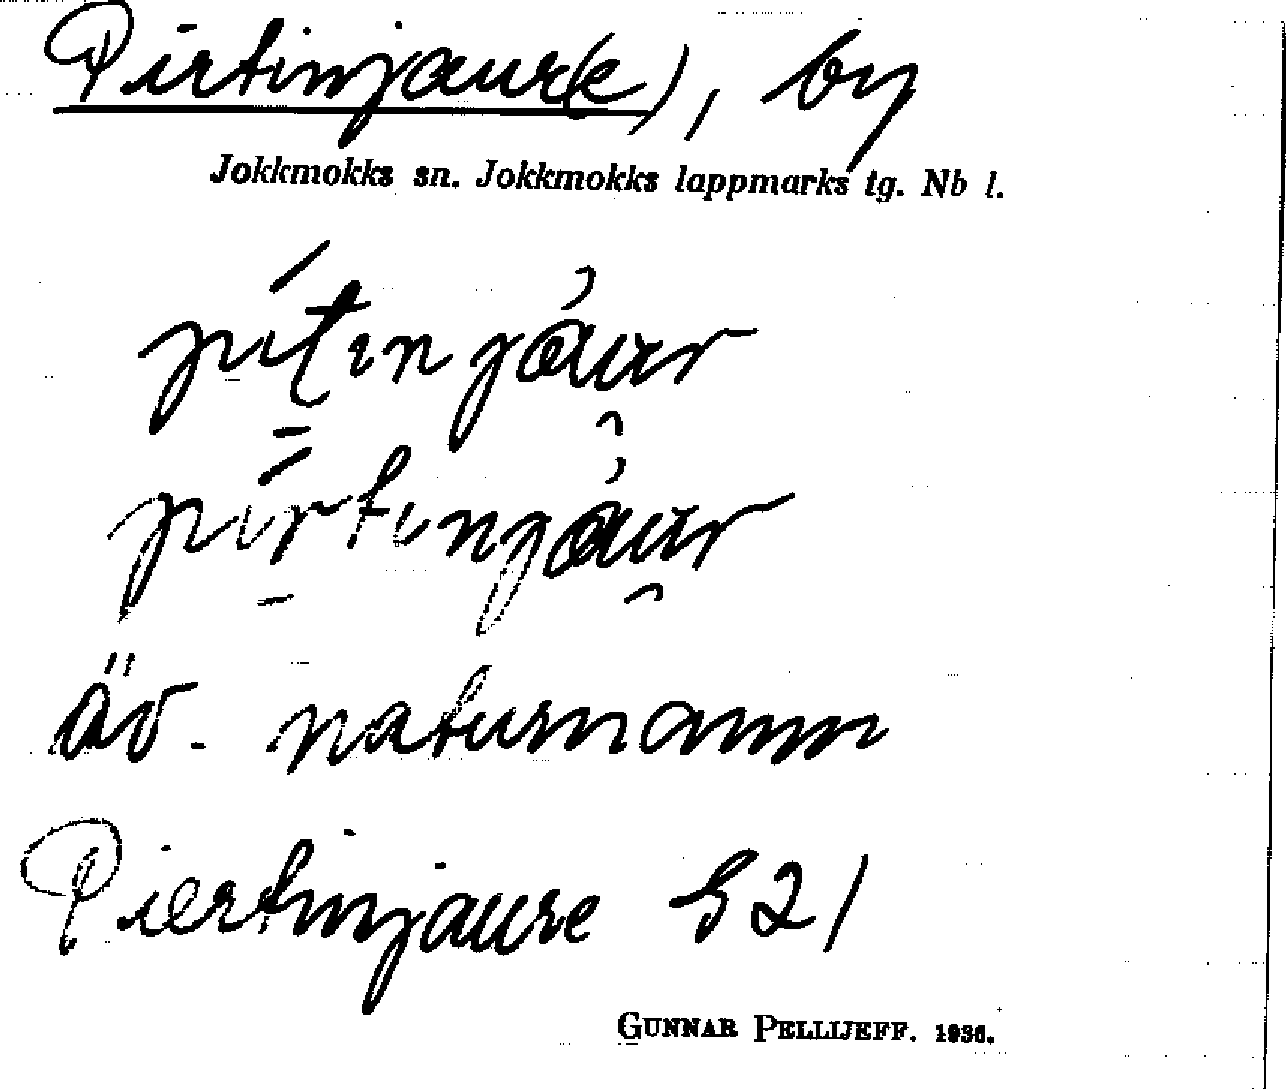 Pirtinjaur(e), by
Jokkmokks sn. Jokkmokks lappmarks tg. Nb l.
pítinjáur
pírtinjáur
äv. naturnamn
Piertinjaure S21
GUNNAR PELLIJEFF. 1936.